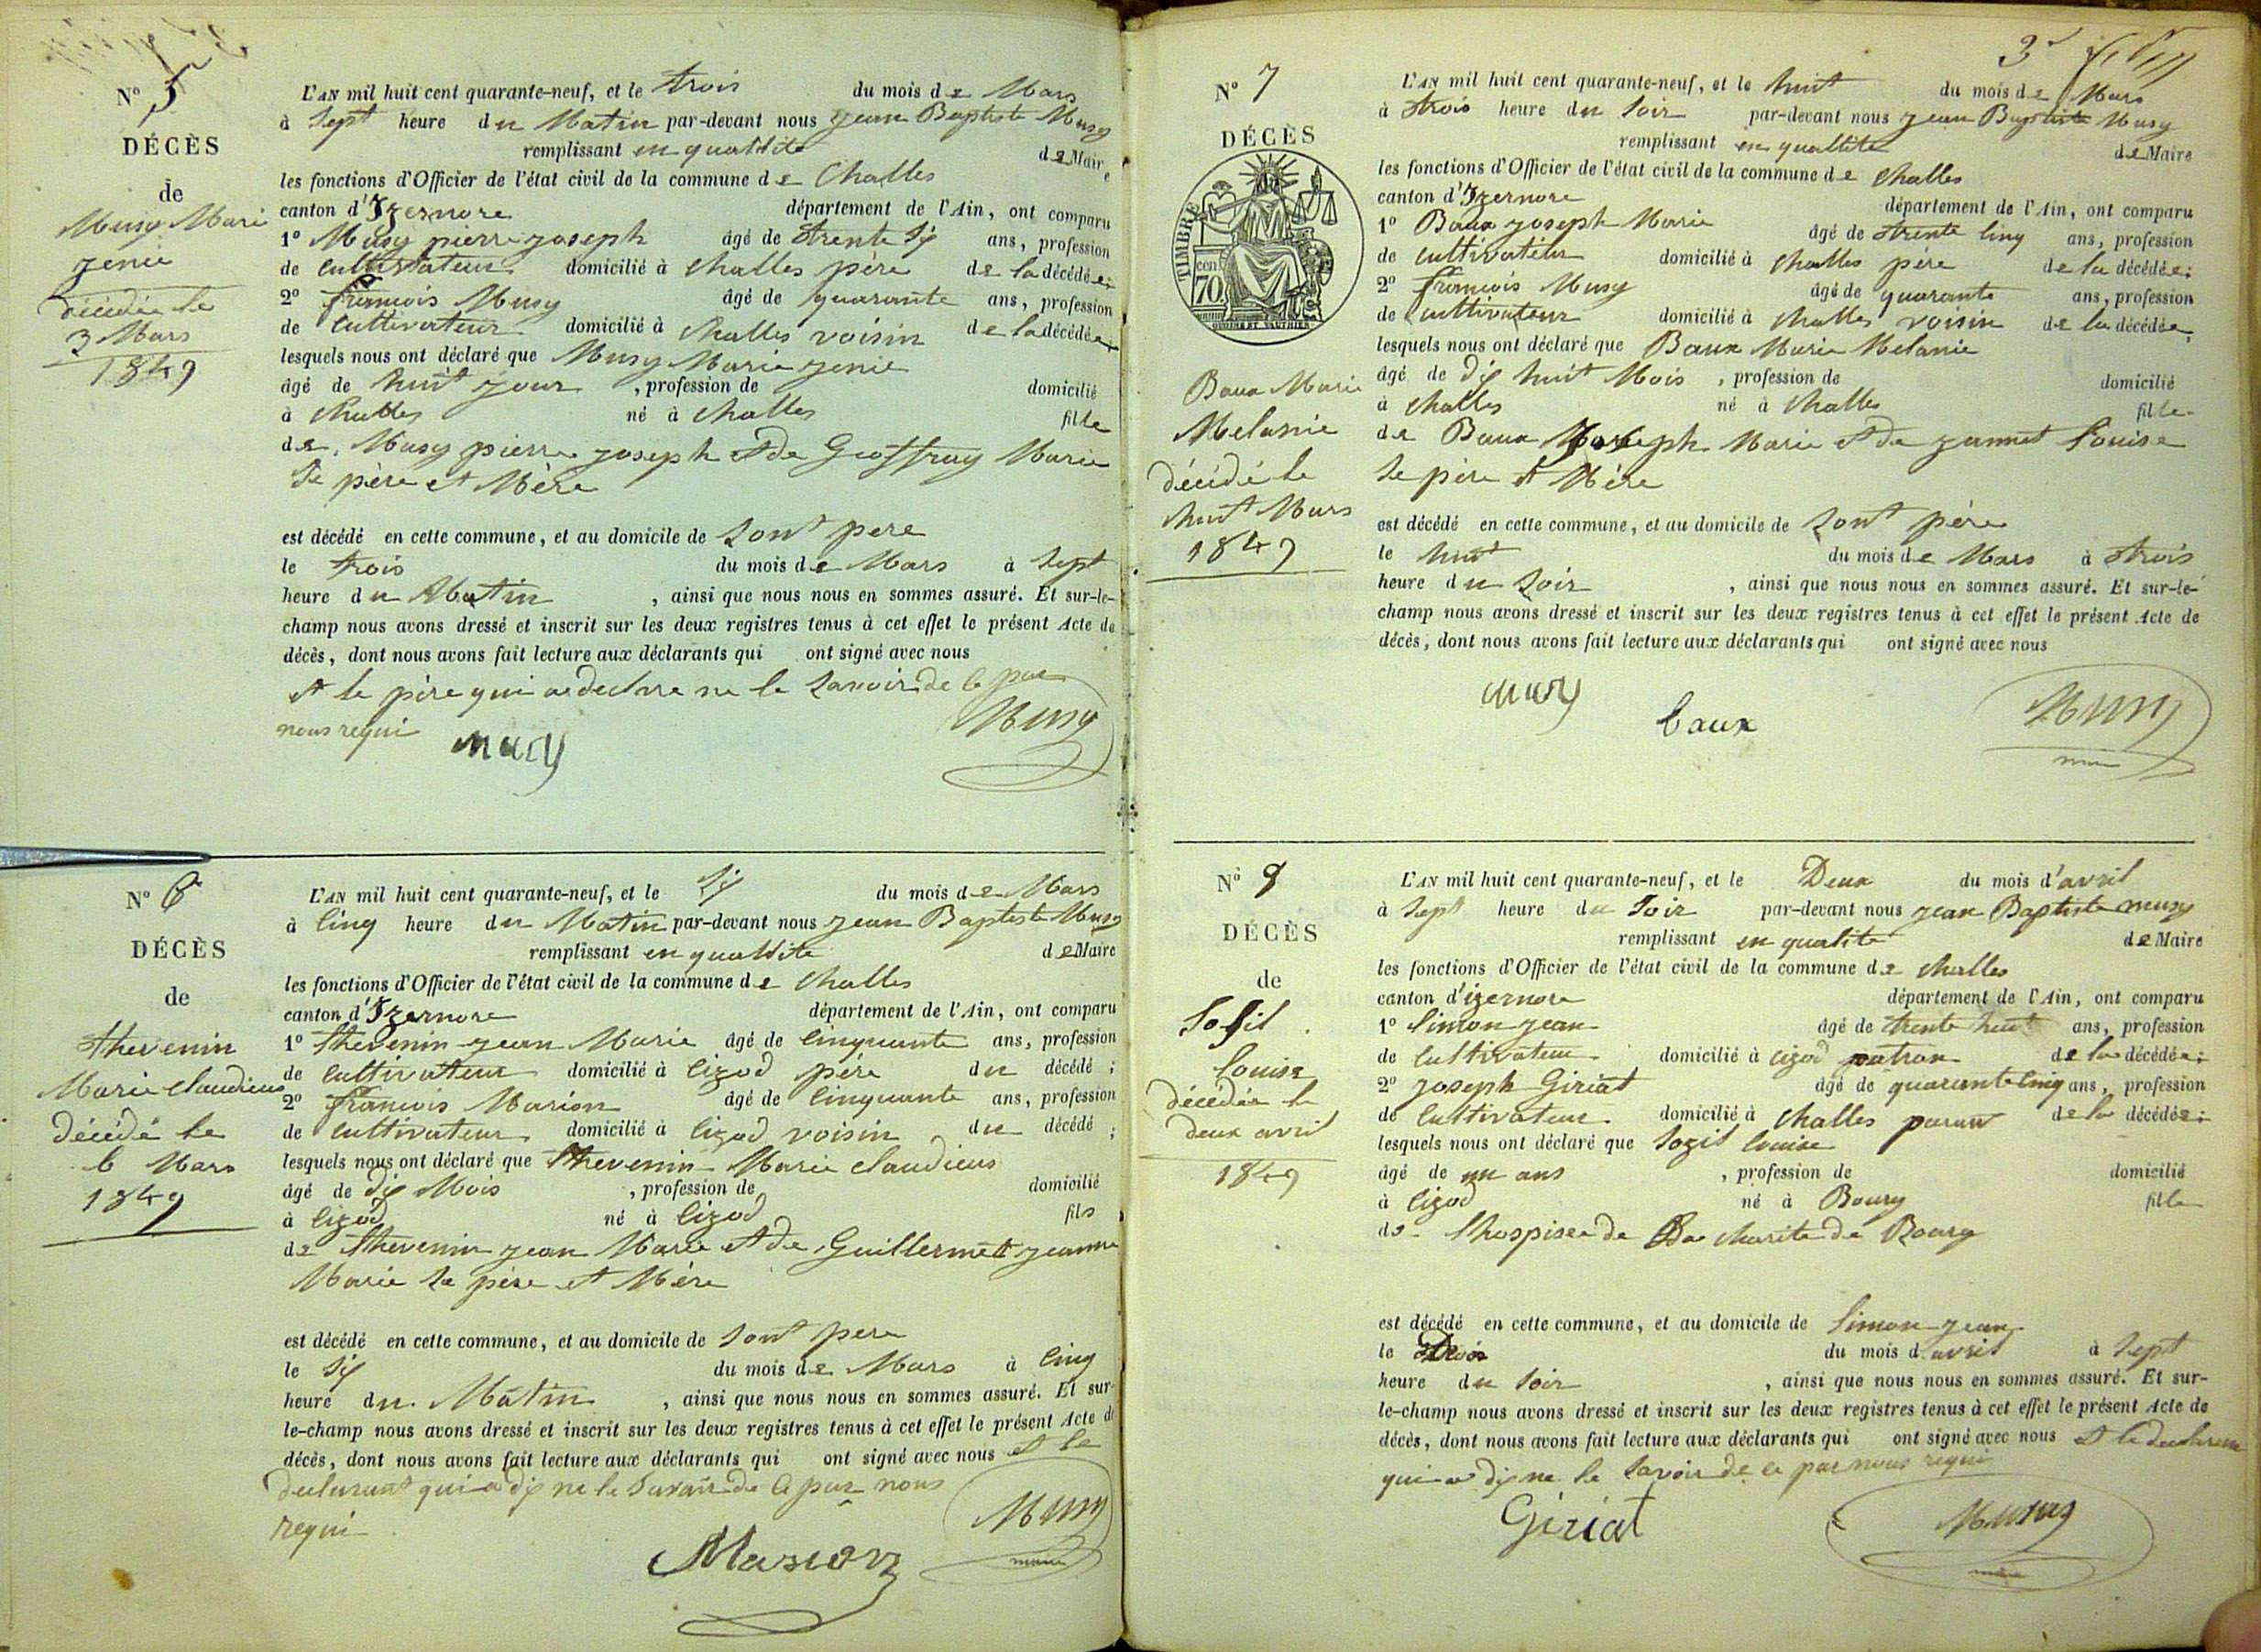 N° 5
DÉCÈS
de
Musy Marie
jenie
décédée le
3 Mars
1849
L'AN mil huit cent quarante-neuf, et le trois du mois de Mars
à sept heure du Matin par-devant nous jean Baptiste Musy
remplissant en quallité de Maire
les fonctions d'Officier de l'état civil de la commune de Challes
canton d'Izernore département de l'Ain, ont comparu
1° Musy pierre joseph âgé de trente six ans, profession
de cultivateur domicilié à Challes père de la décédée;
2° françois Musy âgé de quarante ans, profession
de cultivateur domicilié à Challes voisin de la décédée,
lesquels nous ont déclaré que Musy Marie jenie
âgé de huit jour , profession de domicilié
à Challes né à Challes fille
de Musy pierre joseph et de Geoffray Marie
se père et Mère
est décédé en cette commune, et au domicile de sont pere
le trois du mois de Mars à sept
heure du Matin , ainsi que nous nous en sommes assuré. Et sur-le-
champ nous avons dressé et inscrit sur les deux registres tenus à cet effet le présent Acte de
décès, dont nous avons fait lecture aux déclarants qui ont signé avec nous
et le père qui a declare ne le savoir de ce par
nous requi
musy Musy
N° 6
DÉCÈS
de
thevenin
Marie claudieus
décédé le
6 Mars
1849
L'AN mil huit cent quarante-neuf, et le six du mois de Mars
à cinq heure du Matin par-devant nous jean Baptiste Musy
remplissant en quallité de Maire
les fonctions d'Officier de l'état civil de la commune de Challes
canton d'Izernore département de l'Ain, ont comparu
1° thevenin jean Marie âgé de cinquante ans, profession
de cultivateur domicilié à cizod père du décédé;
2° françois Marion âgé de cinquante ans, profession
de cultivateur domicilié à cizod voisin du décédé;
lesquels nous ont déclaré que thevenin Marie claudieus
âgé de dix Mois , profession de domicilié
à cizod né à cizod fils
de thevenin jean Marie et de Guillermet jeanne
Marie se père et Mère
est décédé en cette commune, et au domicile de sont pere
le six du mois de Mars à cinq
heure du Matin , ainsi que nous nous en sommes assuré. Et sur-
le-champ nous avons dressé et inscrit sur les deux registres tenus à cet effet le présent Acte de
décès, dont nous avons fait lecture aux déclarants qui ont signé avec nous et le
declarant qui a dis ne le savoir de ce par nous
requi
Marion Musy
maire
3e
N° 7
DÉCÈS
TIMBRE
cen
70
OUDINÉ ET VAUTHIER
Baux Marie
Melanie
décédé le
huit Mars
1849
L'AN mil huit cent quarante-neuf, et le huit du mois de Mars
à trois heure du soir par-devant nous jean Baptiste Musy
remplissant en quallité de Maire
les fonctions d'Officier de l'état civil de la commune de Challes
canton d'Izernore département de l'Ain, ont comparu
1° Baux joseph Marie âgé de trente cinq ans, profession
de cultivateur domicilié à challes père de la décédée;
2° françois Musy âgé de quarante ans, profession
de cultivateur domicilié à challes voisin de la décédée,
lesquels nous ont déclaré que Baux Marie Melanie
âgé de dix huit Mois , profession de domicilié
à challes né à challes fille
de Baux joseph Marie et de jannet Louise
se père et Mère
est décédé en cette commune, et au domicile de sont père
le huit du mois de Mars à trois
heure du soir , ainsi que nous nous en sommes assuré. Et sur-le-
champ nous avons dressé et inscrit sur les deux registres tenus à cet effet le présent Acte de
décès, dont nous avons fait lecture aux déclarants qui ont signé avec nous
musy baux Musy
N° 8
DÉCÈS
de
Sozil
Louise
décédée le
deux avril
1849
L'AN mil huit cent quarante-neuf, et le Deux du mois d'avril
à sept heure du soir par-devant nous jean Baptiste musy
remplissant en qualité de Maire
les fonctions d'Officier de l'état civil de la commune de challes
canton d'izernore département de l'Ain, ont comparu
1° Simon jean âgé de trente huit ans, profession
de cultivateur domicilié à cizod patron de la décédée;
2° joseph Giriat âgé de quarante cinq ans, profession
de cultivateur domicilié à challes de la décédée;
lesquels nous ont déclaré que Sozil louise
âgé de un ans , profession de domicilié
à cizod né à Bourg fille
de l'hospise de la charite de Bourg
est décédé en cette commune, et au domicile de Simon jean
le Deux du mois d'avril à sept
heure du soir , ainsi que nous nous en sommes assuré. Et sur-
le-champ nous avons dressé et inscrit sur les deux registres tenus à cet effet le présent Acte de
décès, dont nous avons fait lecture aux déclarants qui ont signé avec nous et le declarant
qui a dis ne le savoir de ce par nous requi
Giriat Musy